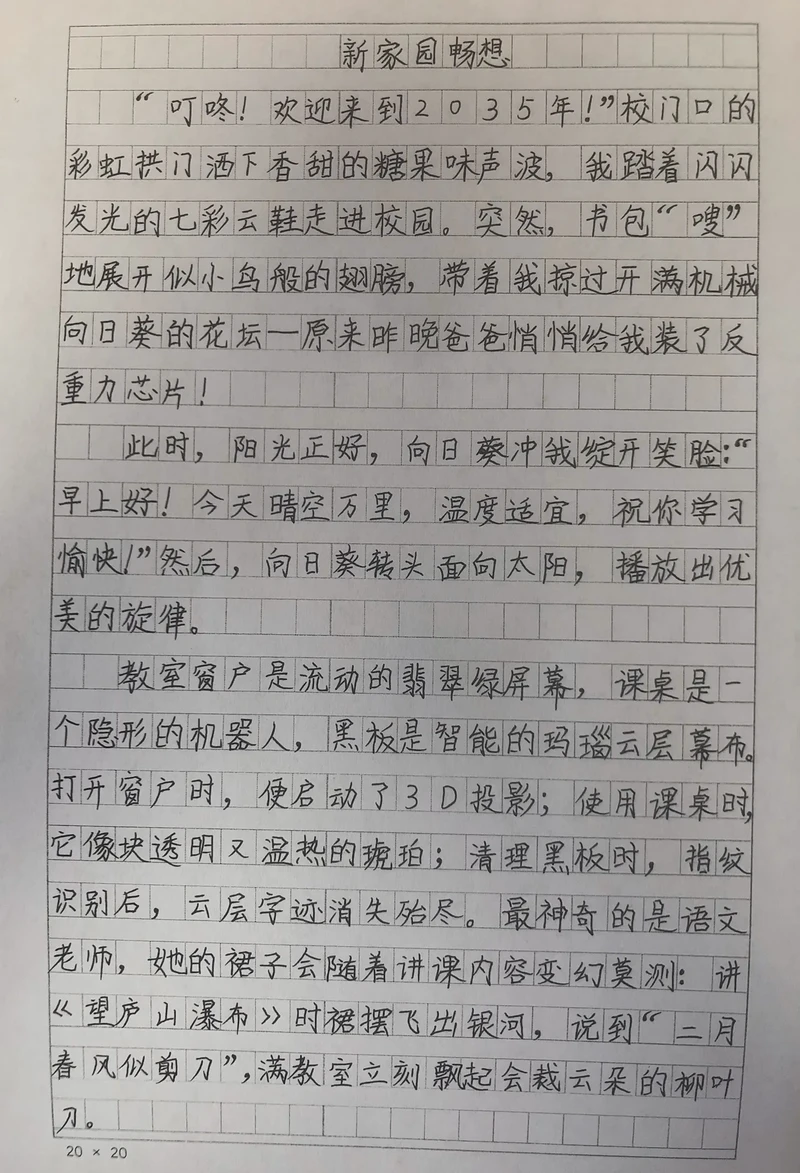 新家园畅想
“叮咚！欢迎来到2035年！”校门口的
彩虹拱门洒下香甜的糖果味声波，我踏着闪闪
发光的七彩云鞋走进校园。突然，书包“嗖”
地展开似小鸟般的翅膀，带着我掠过开满机械
向日葵的花坛—原来昨晚爸爸悄悄给我装了反
重力芯片！
此时，阳光正好，向日葵冲我绽开笑脸：“
早上好！今天晴空万里，温度适宜，祝你学习
愉快！”然后，向日葵转头面向太阳，播放出优
美的旋律。
教室窗户是流动的翡翠绿屏幕，课桌是一
个隐形的机器人，黑板是智能的玛瑙云层幕布。
打开窗户时，便启动了3D投影；使用课桌时，
它像块透明又温热的琥珀；清理黑板时，指纹
识别后，云层字迹消失殆尽。最神奇的是语文
老师，她的裙子会随着讲课内容变幻莫测：讲
《望庐山瀑布》时裙摆飞出银河，说到“二月
春风似剪刀”，满教室立刻飘起会裁云朵的柳叶
刀。
20 × 20